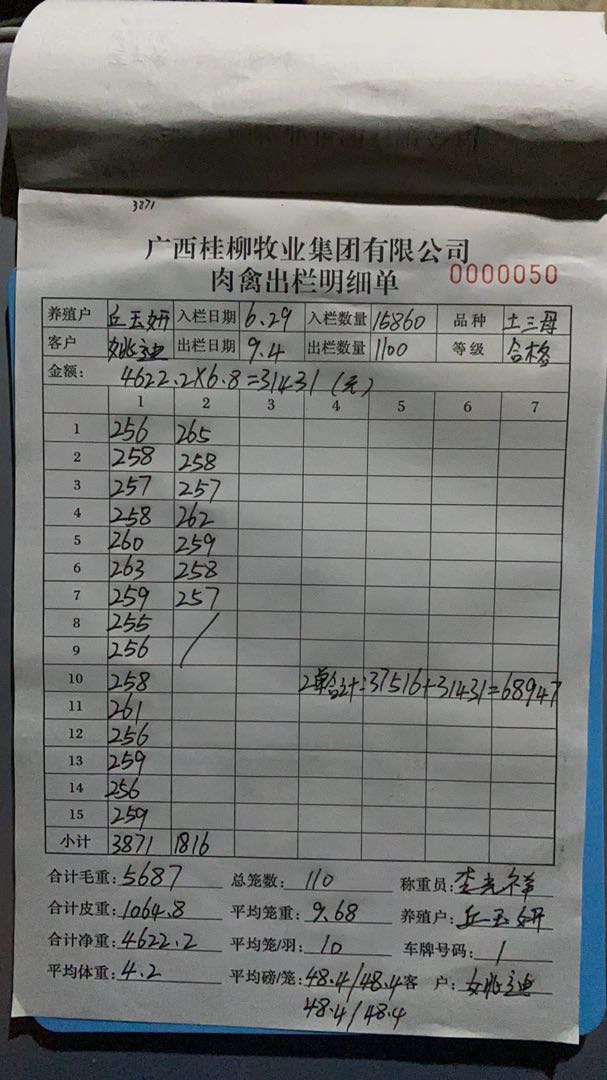 3871
广西桂柳牧业集团有限公司
肉禽出栏明细单 0000050
养殖户 丘玉妍 入栏日期 6.29 入栏数量 15860 品种 土三母
客户 出栏日期 9.4 出栏数量 1100 等级 合格
金额: 4622.2×6.8=31431(元)
1 2 3 4 5 6 7
1 256 265
2 258 258
3 257 257
4 258 262
5 260 259
6 263 258
7 259 257
8 255 /
9 256
10 258 2单合计:37516+31431=68947
11 261
12 256
13 259
14 256
15 259
小计 3871 1816
合计毛重: 5687 总笼数: 110 称重员: 李光祥
合计皮重: 1064.8 平均笼重: 9.68 养殖户: 丘玉妍
合计净重: 4622.2 平均笼/羽: 10 车牌号码: 1
平均体重: 4.2 平均磅/笼: 48.4/48.4 客 户:
48.4/48.4